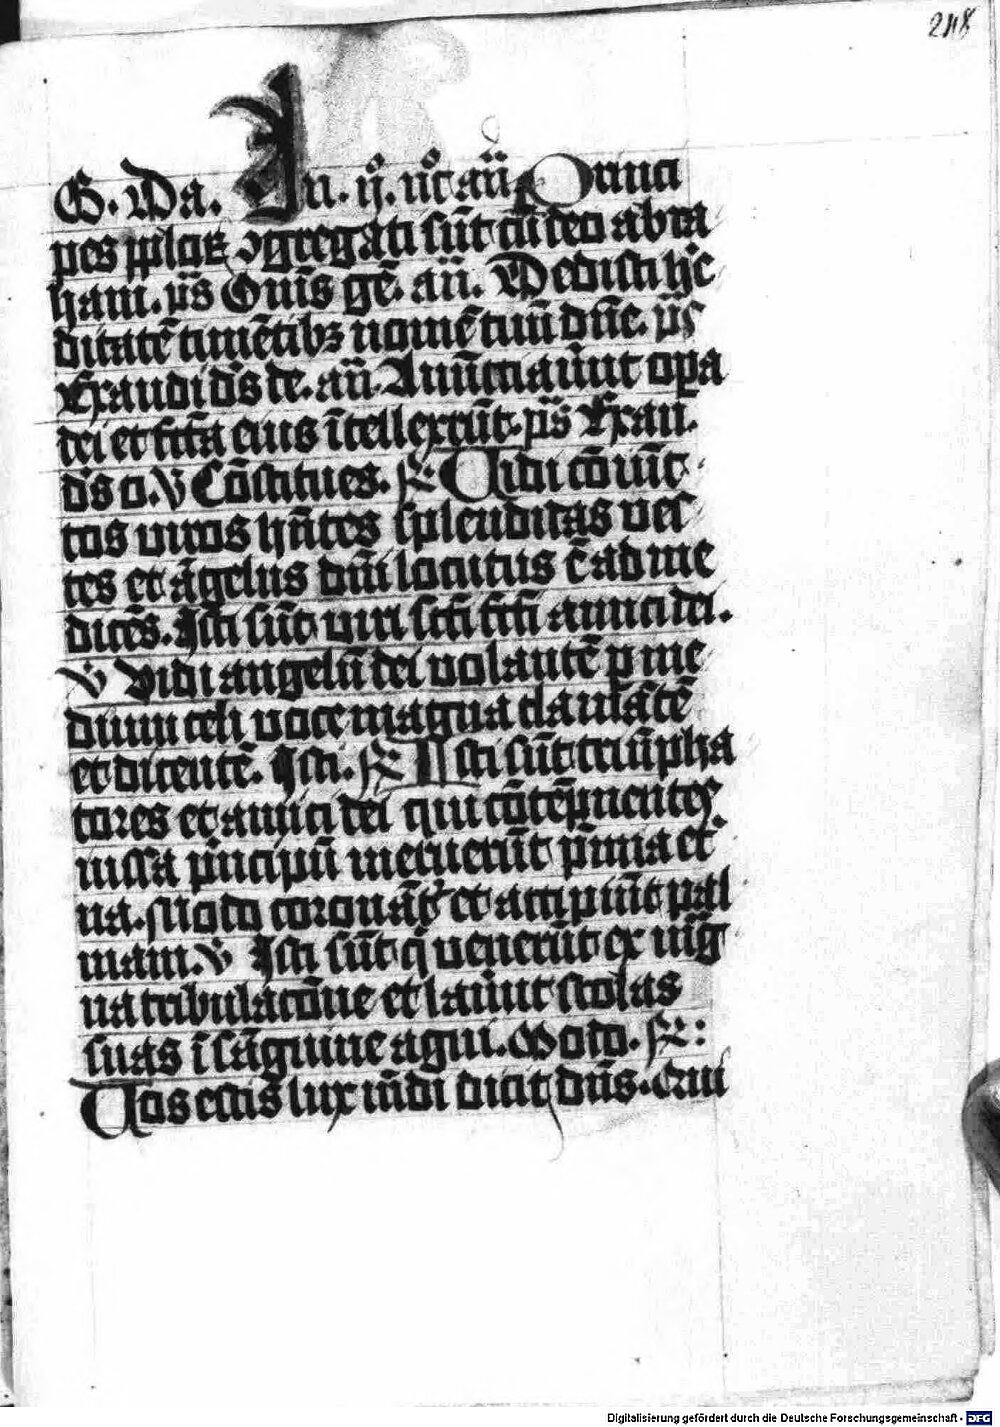 248
G. Da. In. ij. nͦc añ. Princi
pes pp̄loꝝ ꝯgregati sūt cū deo abra
ham. p̄s Om̄s gē. añ. Dedisti h̓e
ditatē timētibꝫ nomē tuū dn̄e. p̄s
Exaudi ds̄ de. añ. Annūciav̓unt oꝑa
dei et fc̄a eius ītellexerūt. p̄s Exau.
ds̄ o. ℣ Cōstitues. ℞ Vidi cōiūc
tos viros hn̄tes splendidas ves
tes et āgelus dn̄i locutus ē ad me
dicēs. Isti sūt viri scī fc̄i amici dei.
℣ Vidi angelū dei volantē ꝑ me
dium celi voce magna clamātē
et dicentē. Isti. ℞ Isti sūt triūpha
tores et amici dei qui cōtēpnentes
iussa pͥncipū meruerūt pͥmia et̓
na. Mōdo coronāt̃ et accipiūt pal
mam. ℣ Isti sūt qͥ venerūt ex mag
na tribulacōne et lav̓unt stolas
suas ī sāguine agni. Modo. ℞:
Vos estis lux mūdi dicit dn̄s. Eui
Digitalisierung gefördert durch die Deutsche Forschungsgemeinschaft - DFG